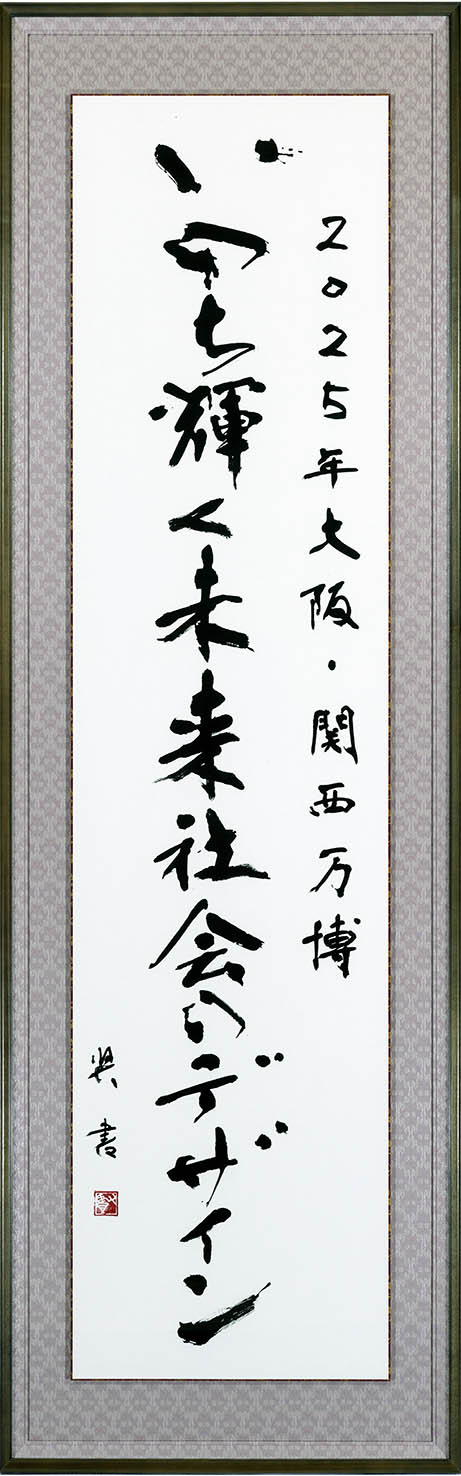 2025年大阪・関西万博
いのち輝く未来社会のデザイン
書